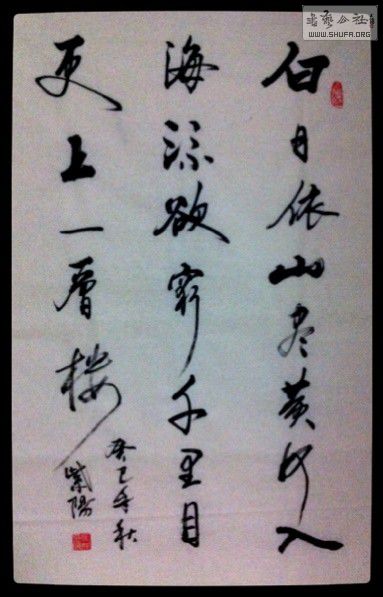 白日依山尽黄河入
海流欲穷千里目
更上一层楼
癸巳年秋
紫阳
书艺公社
WWW.SHUFA.ORG